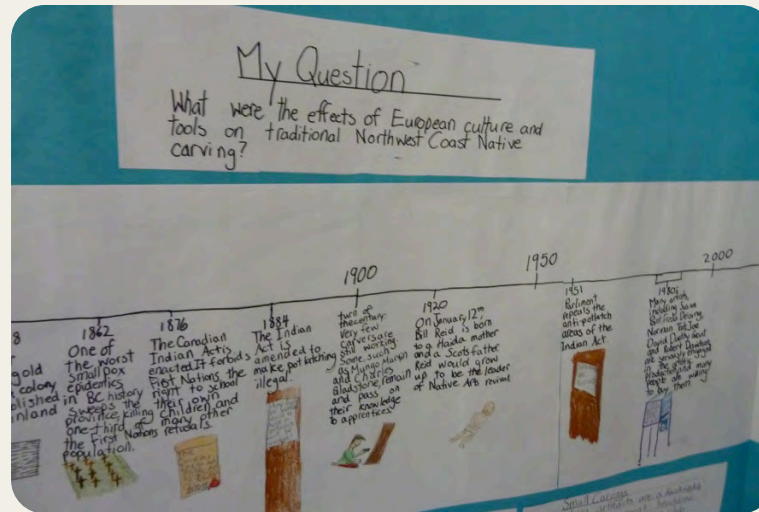 My Question
What were the effects of European culture and
tools on traditional Northwest Coast Native
carving?
1900
1950
2000
8
gold
colony
blished
inland
1862
One of
the worst
Small pox
epidemics
in BC history
sweeps the
province, killing
one-third of
the First Nations
population.
1876
The Canadian
Indian Act is
enacted It forbods
First Nations the
right to school
their own
Children and
many other
refusals.
1884
The Indian
Act is
amended to
make potlatching
illegal.
turn of
the century:
Very few
carvers are
still working
Some, such
as Mungo Martin
and Charles
Gladstone, remain
and pass on
their knowledge
to apprentices.
1920
On January 12th,
Bill Reid is born
to a Haida mother
and a Scots father
Reid would grow
up to be the leader
of Native Arts revival
1951
Parliment
repeals the
anti-potlatch
areas of the
Indian Act
1980s
Many artists
including
Bill Reid
Norman Tait, Joe
David
and Robert Davidson
are seriously engaged
in the
and many
people are willing
to buy them
Small Carvings
are a